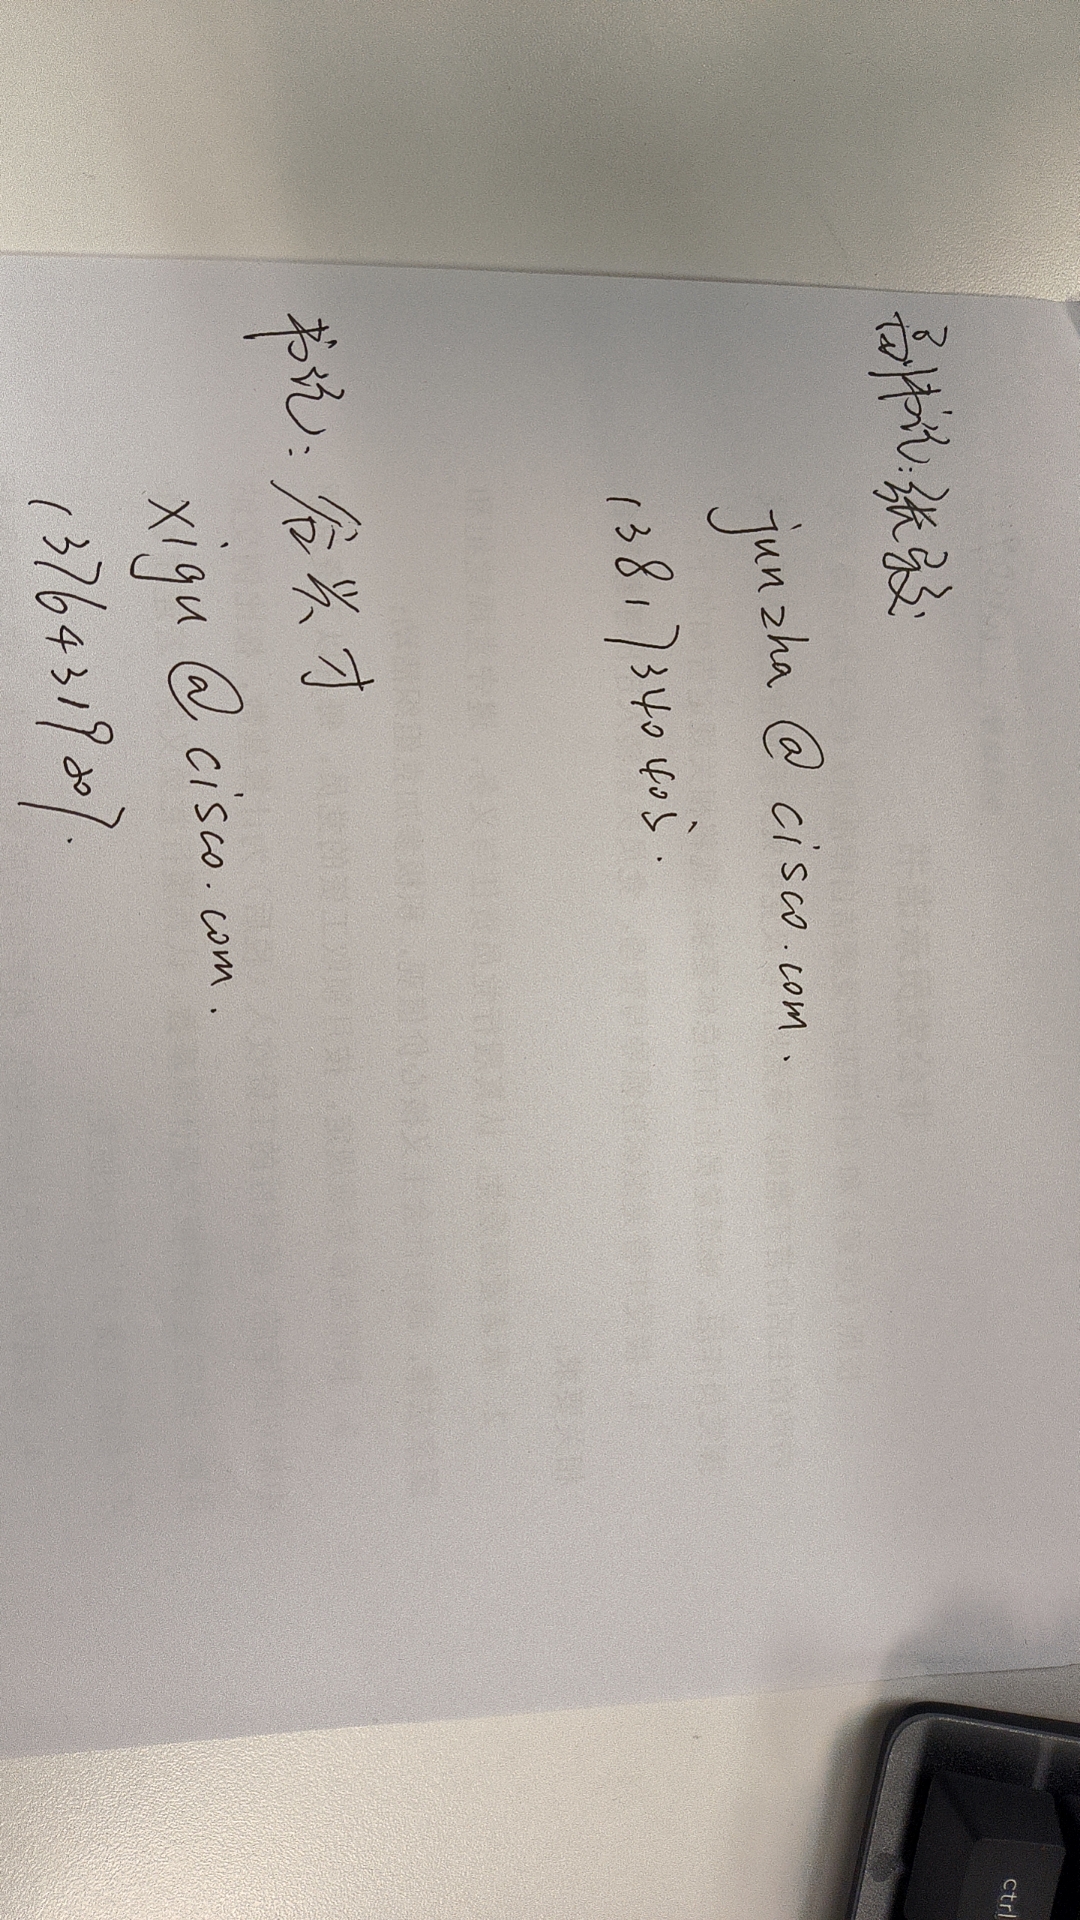 副书记: 张君
junzha@cisco.com.
13817340405.
书记: 谷兴才
xigu@cisco.com.
13764319087.
ctrl